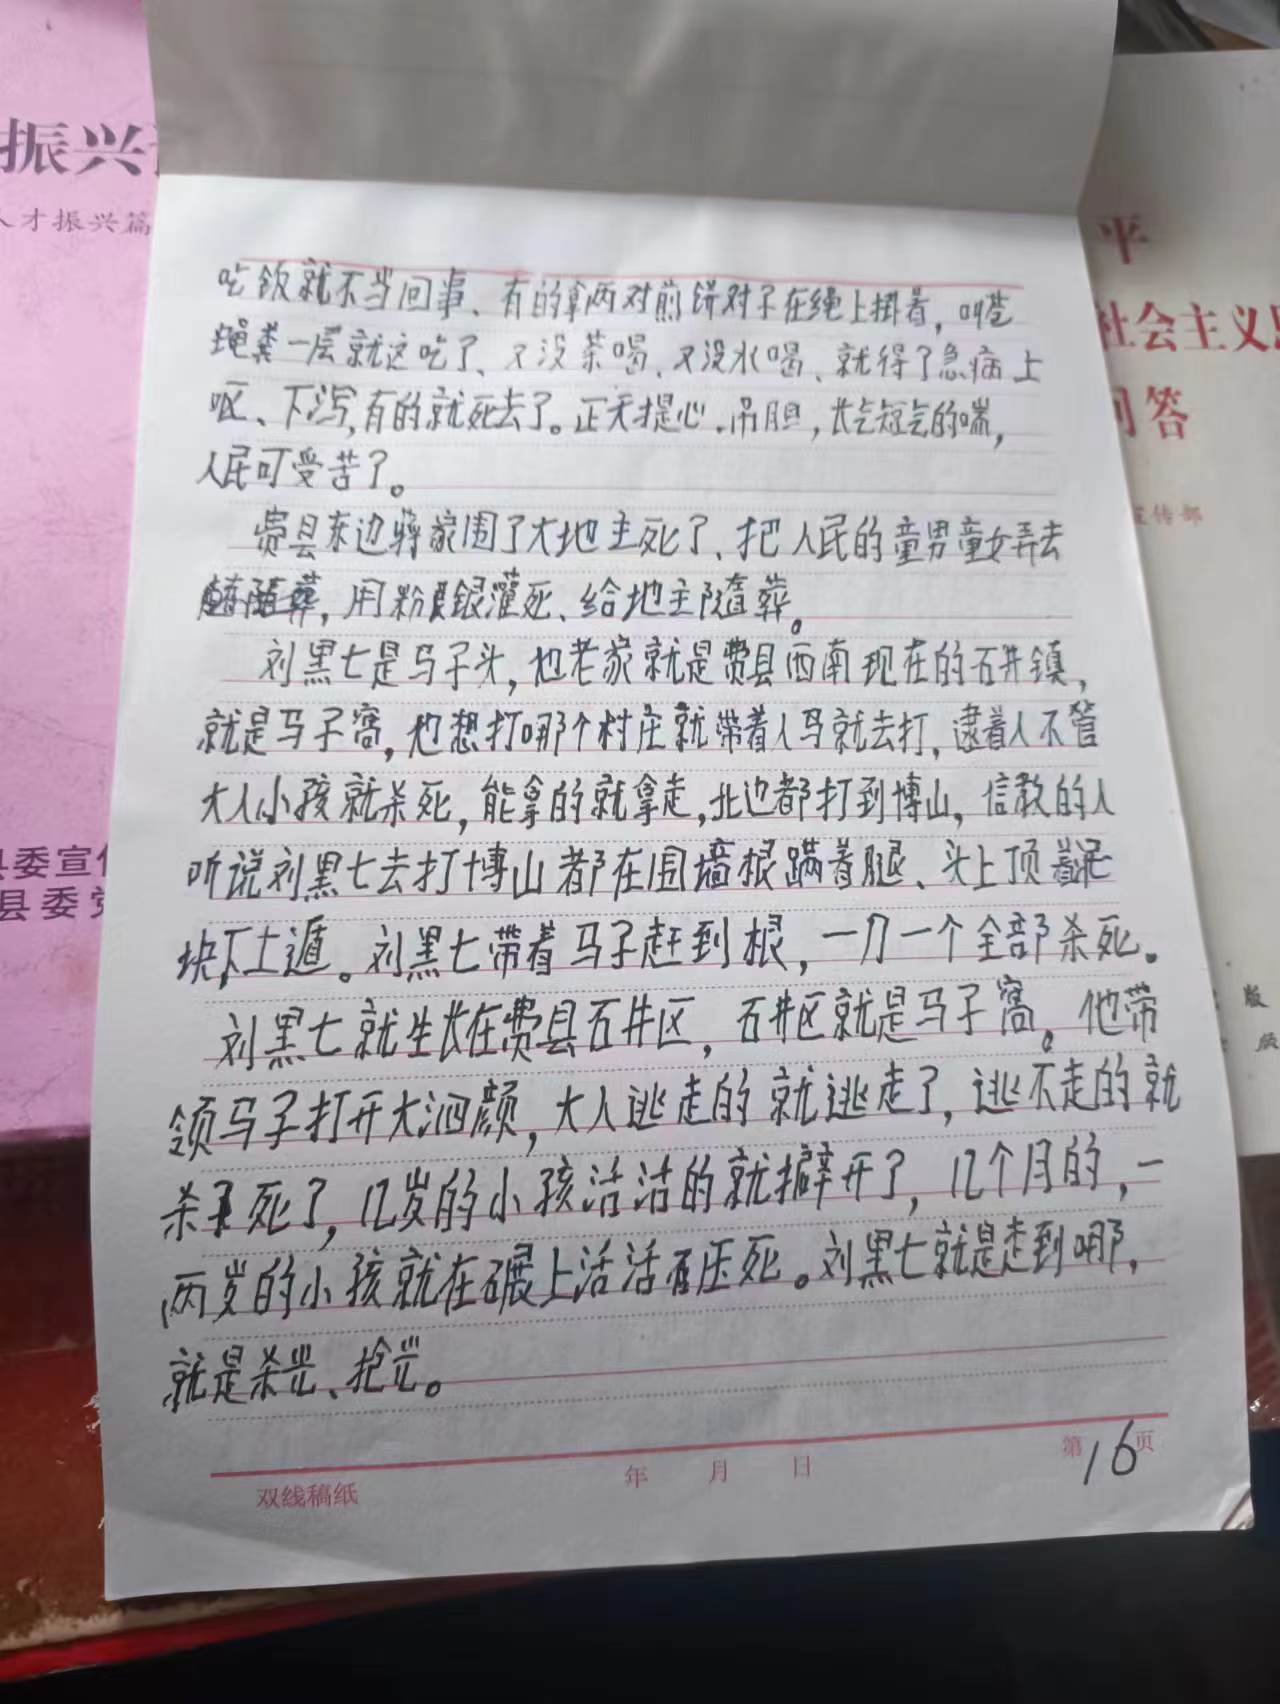 振兴
人才振兴篇
县委宣传
县委党
平
社会主义思
问答
宣传部
版
版
吃饭就不当回事、有的拿两对煎饼对子在绳上掛着，叫苍
蝇粪一层就这吃了、又没茶喝、又没水喝、就得了急病上
呕、下泻，有的就死去了。正天提心.吊胆，长气短气的喘，
人民可受苦了。
费县东边蒋家围了大地主死了、把人民的童男童女弄去
随葬，用粉银灌死、给地主随葬。
刘黑七是马子头，他老家就是费县西南现在的石井镇，
就是马子窝，他想打哪个村庄就带着人马就去打，逮着人不管
大人小孩就杀死，能拿的就拿走，北边都打到博山，信教的人
听说刘黑七去打博山都在围墙根蹒着腿、头上顶着
块下土遁。刘黑七带着马子赶到根，一刀一个全部杀死。
刘黑七就生长在费县石井区，石井区就是马子窝。他带
领马子打开大泗颜，大人逃走的就逃走了，逃不走的就
杀死了，几岁的小孩活活的就擗开了，几个月的，一
两岁的小孩就在碾上活活压死。刘黑七就是走到哪，
就是杀光、抢光。
双线稿纸
年 月 日
第16页